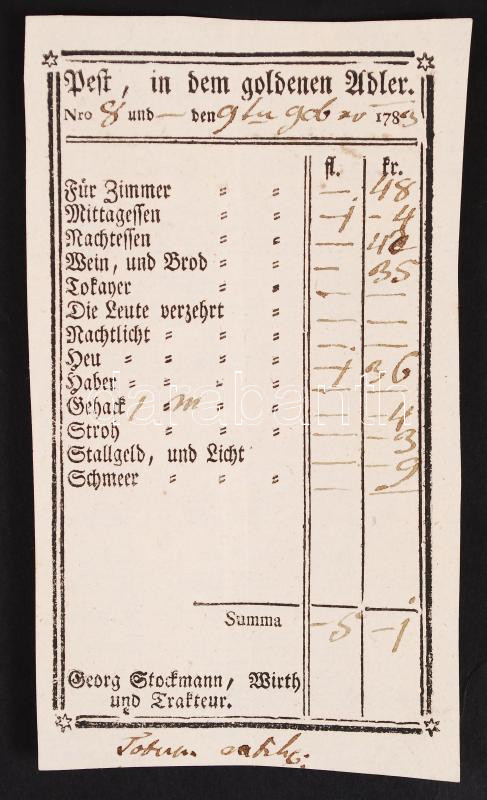 Pest, in dem goldenen Adler.
Nro 8 und — den 9tn 9ber 1783
fl. kr.
Für Zimmer " " — 48
Mittagessen " " — 1 — 4
Nachtessen " " — 42
Wein, und Brod " " — 35
Tokayer " " — —
Die Leute verzehrt " — —
Nachtlicht " " " " — —
Heu " " " " " — 1 36
Haber " " " " " — —
Gehack 1 m " " " — 4
Stroh " " " — 3
Stallgeld, und Licht — 9
Schmeer " " " " — —
darabanth
Summa — 5 — 1
Georg Stockmann, Wirth
und Trakteur.